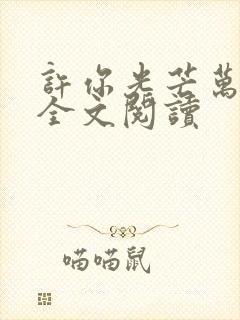 許你光芒萬
全文閱讀
喵喵鼠